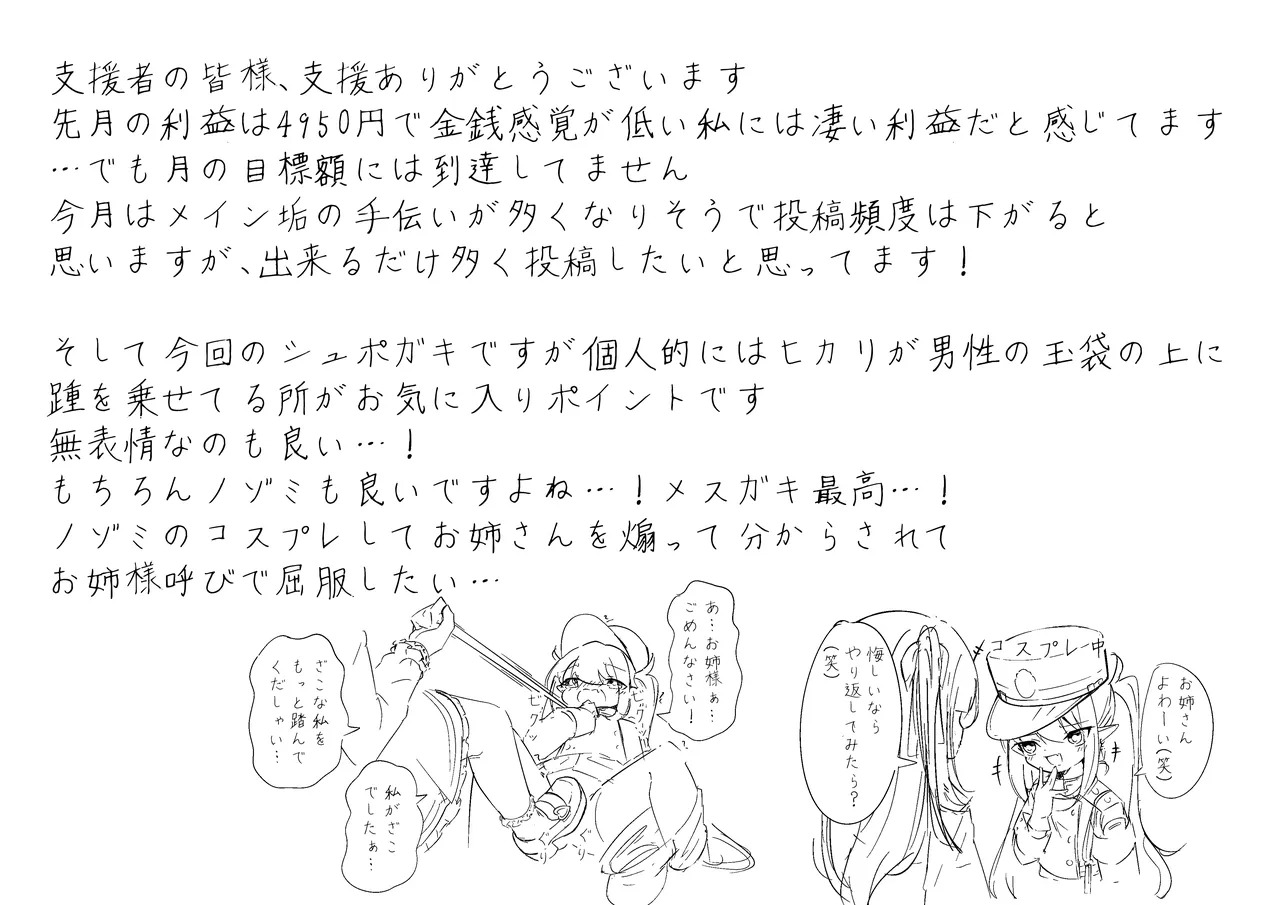 支援者の皆様、支援ありがとうございます
先月の利益は4950円で金銭感覚が低い私には凄い利益だと感じてます
…でも月の目標額には到達してません
今月はメイン垢の手伝いが多くなりそうで投稿頻度は下がると
思いますが、出来るだけ多く投稿したいと思ってます！
そして今回のシュポガキですが個人的にはヒカリが男性の玉袋の上に
踵を乗せてる所がお気に入りポイントです
無表情なのも良い…！
もちろんノゾミも良いですよね…！メスガキ最高…！
ノゾミのコスプレしてお姉さんを煽って分からされて
お姉様呼びで屈服したい…
コスプレ中
お姉さん
よわーい(笑)
悔しいなら
やり返してみたら？
(笑)
あ…お姉様ぁ…
ごめんなさい！
ざこな私を
もっと踏んで
くだしゃい…
私がざこ
でしたぁ…
ビクッ
ビクッ
ぐりぐり